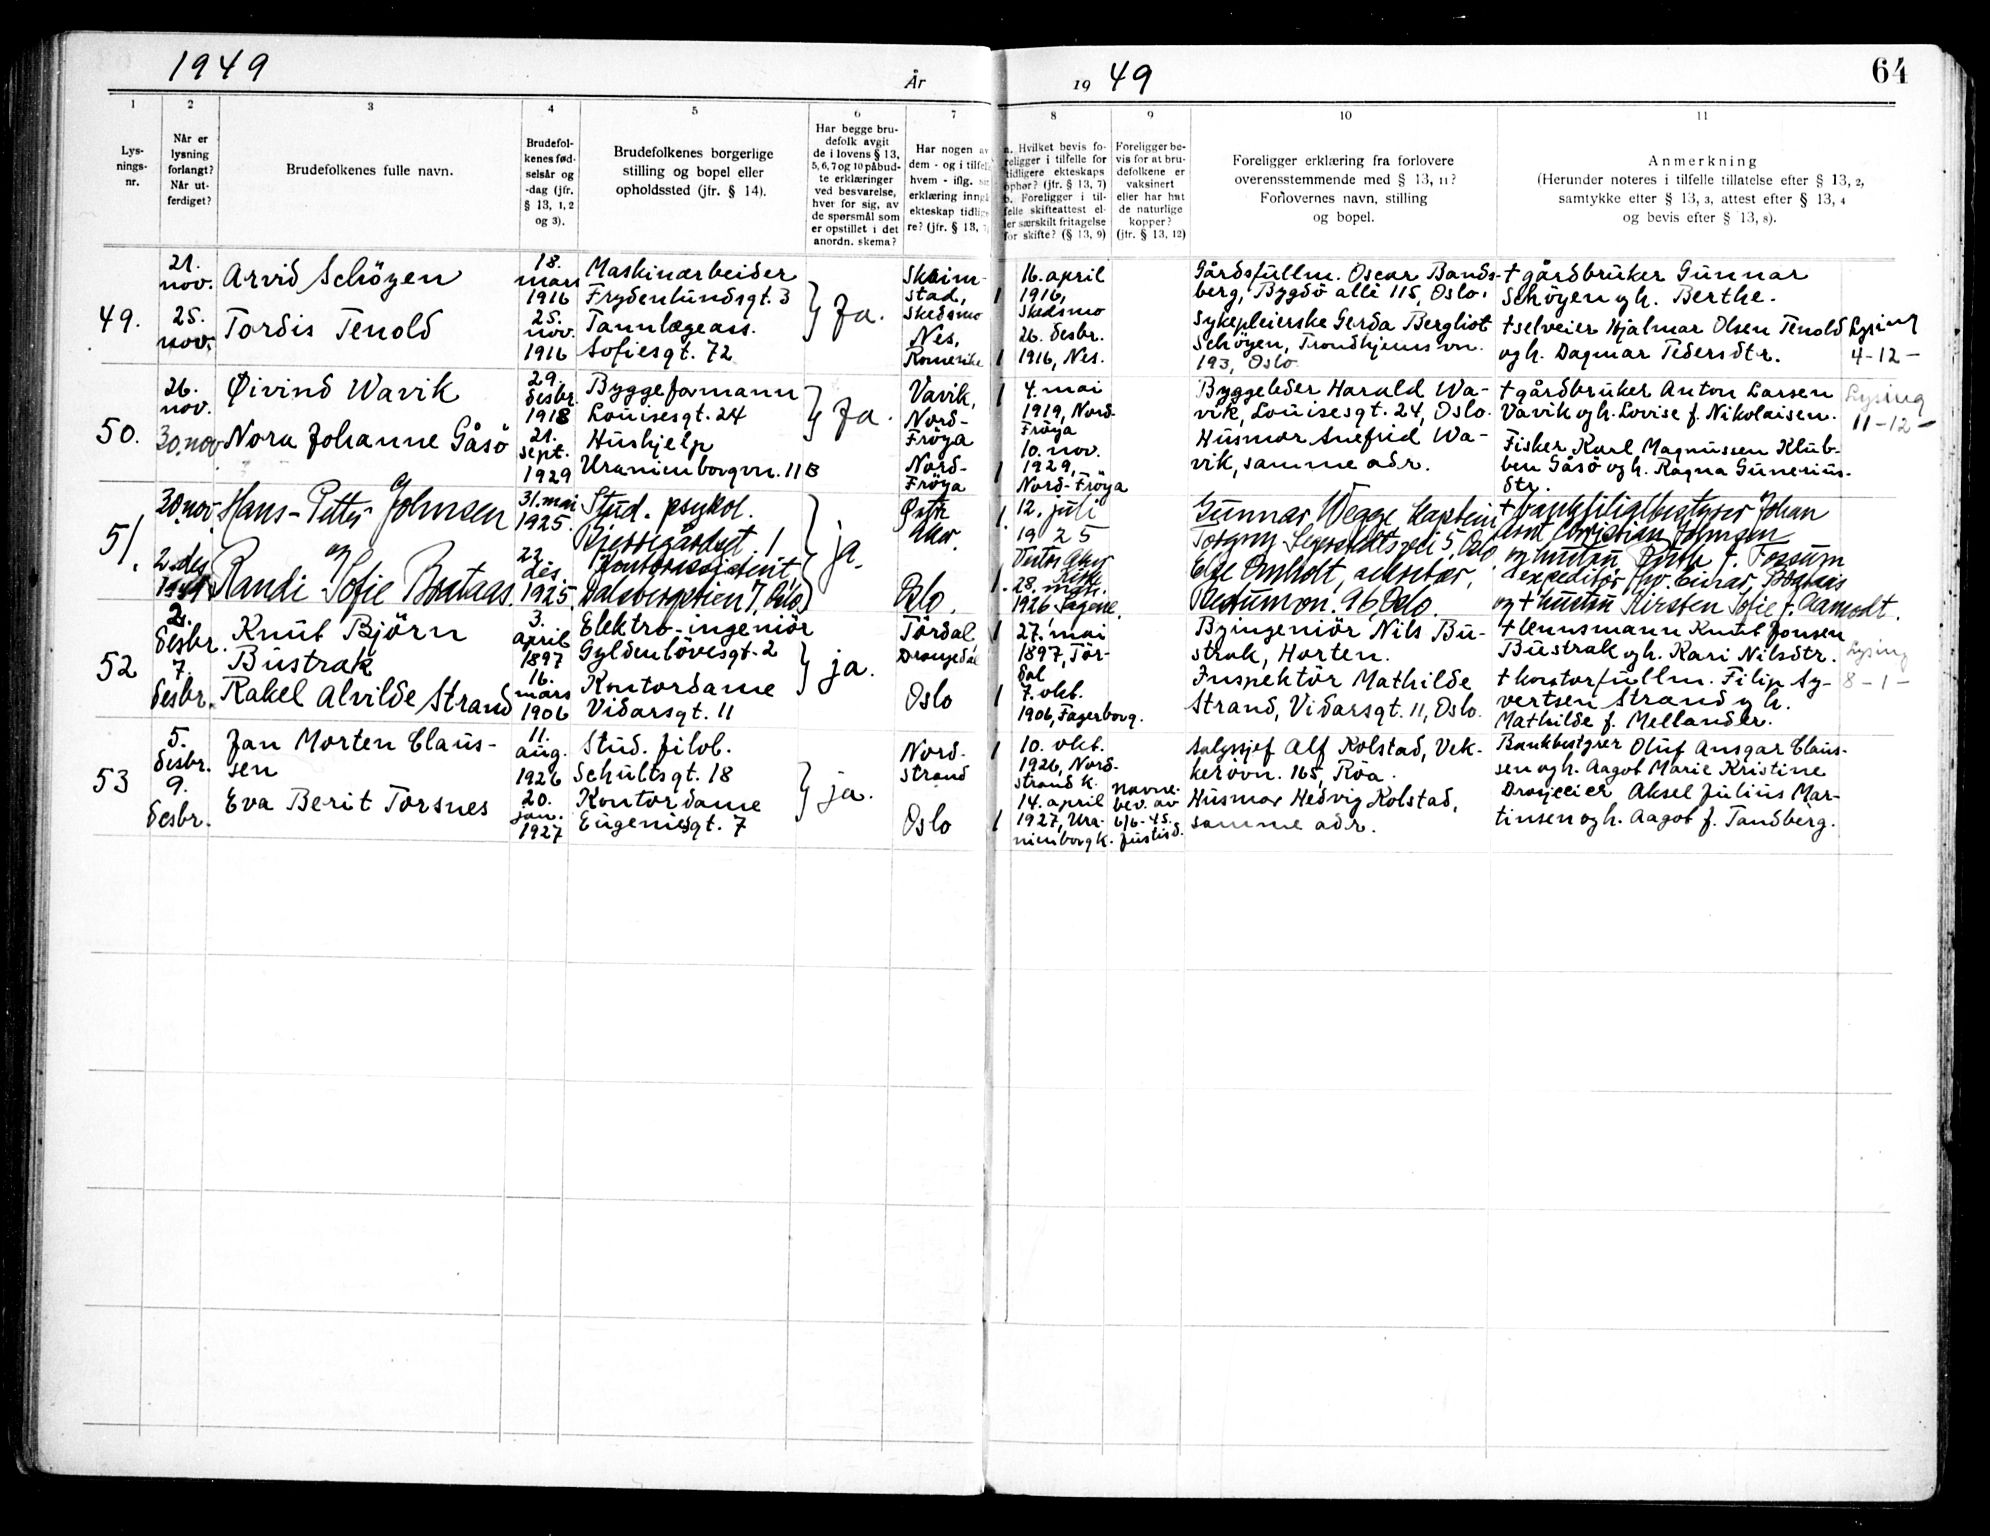 1949
År
19 49
64
1
2
3
4
5
6
7
8
9
10
11
Lys-
nings-
nr.
Når er
lysning
forlangt?
Når ut-
ferdiget?
Brudefolkenes fulle navn.
Brudefol-
kenes fød-
selsår og
-dag (jfr.
§ 13, 1, 2
og 3).
Brudefolkenes borgerlige
stilling og bopel eller
opholdssted (jfr. § 14).
Har begge bru-
defolk avgit
de i lovens § 13,
5, 6, 7 og 10 påbud-
te erklæringer
ved besvarelse,
hver for sig, av
de spørsmål som
er opstillet i det
anordn. skema?
Har nogen av
dem - og i tilfel
hvem - iflg.
erklæring inng
ekteskap tidlig
re? (jfr. § 13,
a. Hvilket bevis fo-
religger i tilfelle for
tidligere ekteskaps
ophør? (jfr. § 13, 7)
b. Foreligger i til-
felle skifteattest el-
ler særskilt fritagelse
for skifte? (§ 13, 9)
Foreligger be-
vis for at bru-
defolkene er
vaksinert
eller har hat
de naturlige
kopper?
(jfr. § 13, 12)
Foreligger erklæring fra forlovere
overensstemmende med § 13, 11?
Forlovernes navn, stilling
og bopel.
Anmerkning
(Herunder noteres i tilfelle tillatelse efter § 13, 2,
samtykke efter § 13, 3, attest efter § 13, 4
og bevis efter § 13, 8).
49.
21.
nov.
25.
nov.
Arvid Schöyen
Tordis Tenold
18.
mars
1916
25.
nov.
1916
Maskinarbeider
Frydenlundsgt. 3
Tannlægeass.
Sofiesgt. 72
Ja.
Skeim-
stad,
Skedsmo
Nes,
Romerike
16. april
1916,
Skedsmo
26. desbr.
1916, Nes.
Gårdsfullm. Oscar Bands-
berg, Bygdö allé 115, Oslo.
Sykepleierske Gerda Bergliot
Schöyen, Trondhjemsvn.
193, Oslo
† gårdbruker Gunnar
Schöyen og h. Berthe.
† selveier Hjalmar Olsen Tenold
og h. Dagmar Pedersdtr.
Lysing
4-12-
50.
26.
nov.
30. nov
Øivind Wavik
Nora Johanne Gåsö
29.
desbr.
1918
21.
sept.
1929
Byggeformann
Louisesgt. 24
Hushjelp
Uranienborgvn. 11B
Ja.
Vavik,
Nord-
Fröya
Nord-
Fröya
4. mai
1919, Nord-
Fröya
10. nov.
1929,
Nord-Fröya
Byggeleder Harald Wa-
vik, Louisesgt. 24, Oslo.
Husmor Anefrid Wa-
vik, samme adr.
† gårdbruker Anton Larsen
Vavik og h. Lovise f. Nikolaisen.
Fisker Karl Magnussen Klub-
ben Gåsö og h. Ragna Gunerius-
dtr.
Lysing
11-12-
51.
30. nov
2. des
1949
Hans-Petter Johnsen
og
Randi Sofie Braataas.
31. mai
1925.
22.
des.
1925.
Stud. psykol.
Bjerregårdsgt. 1
Kontorassistent,
Dalsbergstien 7, Oslo
ja.
Østre
Aker.
Oslo.
12. juli
1925
Østre Aker
Kirke
28. mars
1926, Sagene.
Gunnar Wegge Kaptein
Torgny Segerstedts vei 5, Oslo
Else Omholt, sekretær,
96, Oslo.
† bankfilialbestyrer Johan
Christian Johnsen
og hustru Ruth f. Fossum
ekspeditör Einar Braataas
og † hustru Kirsten Sofie f. Aamodt.
52
2.
desbr.
7.
desbr.
Knut Björn
Bustrak
Rakel Alvilde Strand
3.
april
1897
16.
mars
1906
Elektro-ingeniör
Gyldenlövesgt. 2
Kontordame
Vidarsgt. 11
ja.
Tördal,
Drangedal
Oslo
27. mai
1897, Tör-
dal
7. okt.
1906, Fagerborg.
Byingeniör Nils Bu-
strak, Horten.
Inspektör Mathilde
Strand, Vidarsgt. 11, Oslo.
† lennsmann Knut Jonsen
Bustrak og h. Kari Nilsdtr.
† kontorfullm. Filip Sy-
vertsen Strand og h.
Mathilde f. Mellander.
Lysing
8-1-
53
5.
desbr.
9.
desbr.
Jan Morten Claus-
sen
Eva Berit Torsnes
11.
aug.
1926
20.
jan.
1927
Stud. filol.
Schultsgt. 18
Kontordame
Eugeniesgt. 7
ja.
Nord-
strand
Oslo
10. okt.
1926, Nord-
strand k.
14. april
1927, Ura-
nienborg k.
navne-
bev. av
6/6-45.
Justisd.
Salgssjef Alf Kolstad, Vek-
kerövn. 165, Röa.
Husmor Hedvig Kolstad,
samme adr.
Bankbestyrer Oluf Ansgar Claus-
sen og h. Aagot Marie Kristine
Drogeeier Aksel Julius Mar-
tinsen og h. Aagot f. Tandberg.